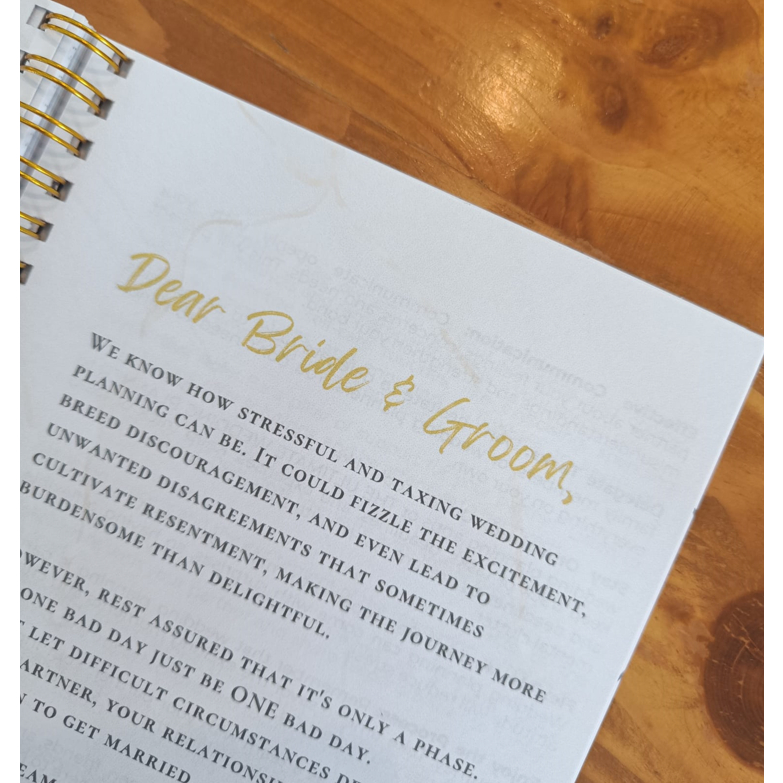 Dear Bride & Groom,
We know how stressful and taxing wedding
planning can be. It could fizzle the excitement,
breed discouragement, and even lead to
unwanted disagreements that sometimes
cultivate resentment, making the journey more
burdensome than delightful.
owever, rest assured that it's only a phase.
one bad day just be ONE bad day.
let difficult circumstances de
artner, your relationshi
n to get married
eam